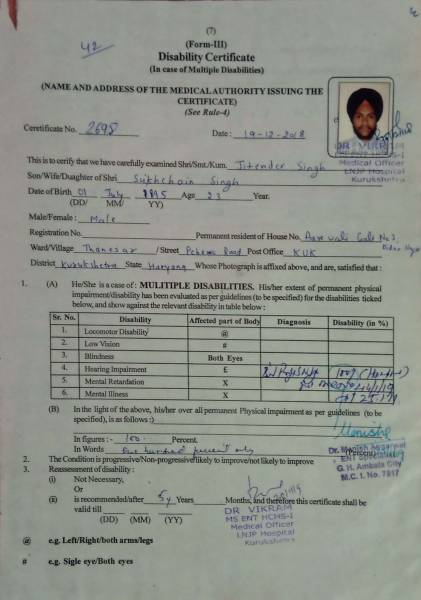 (7)
42
(Form-III)
Disability Certificate
(In case of Multiple Disabilities)
(NAME AND ADDRESS OF THE MEDICAL AUTHORITY ISSUING THE
CERTIFICATE)
(See Rule-4)
Ceretificate No. 2698 Date : 19-12-2018
DR VIKRAM
MS ENT HCMS-I
Medical Officer
LNJP Hospital
Kurukshetra
This is to certify that we have carefully examined Shri/Smt./Kum. Jitender Singh
Son/Wife/Duaghter of Shri Sukhchain Singh
Date of Birth 01 July 1995 Age 23 Year.
(DD/ MM/ YY)
Male/Female : Male
Registration No. Permanent resident of House No.
Ward/Village Thanesar / Street Road Post Office KUK
District Kurukshetra State Haryana Whose Photograph is affixed above, and are, satisfied that :
1. (A) He/She is a case of : MULITIPLE DISABILITIES. His/her extent of permanent physical
impairment/disability has been evaluated as per guidelines (to be specified) for the disabilities ticked
below, and show against the relevant disability in table below :
Sr. No. Disability Affected part of Body Diagnosis Disability (in %)
1. Locomotor Disability @
2. Low Vision #
3. Blindness Both Eyes
4. Hearing Impairment £ 100%
5. Mental Retardation X
6. Mental Illness X
(B) In the light of the above, his/her over all permanent Physical impairment as per guidelines (to be
specified), is as follows :)
In figures :- 100 Percent.
In Words One hundred percent only (Percent)
Dr. Manish Aggarwal
ENT Specialist
G. H. Ambala City
M.C.I. No. 7917
2. The Condition is progressive/Non-progressive/likely to improve/not likely to improve
3. Reassessment of disability :
(i) Not Necessary,
Or
(ii) is recommended/after 5y Years Months, and therefore this certificate shall be
valid till
(DD) (MM) (YY)
DR VIKRAM
MS ENT HCMS-I
Medical Officer
LNJP Hospital
Kurukshetra
@ e.g. Left/Right/both arms/legs
# e.g. Sigle eye/Both eyes